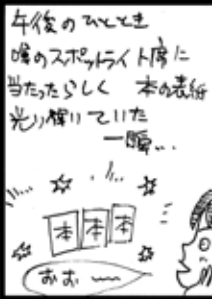 午後のひととき
噂のスポットライト席に
当たったらしく 本の表紙
光り輝いていた
一瞬…
本 本 本
おぉ〜